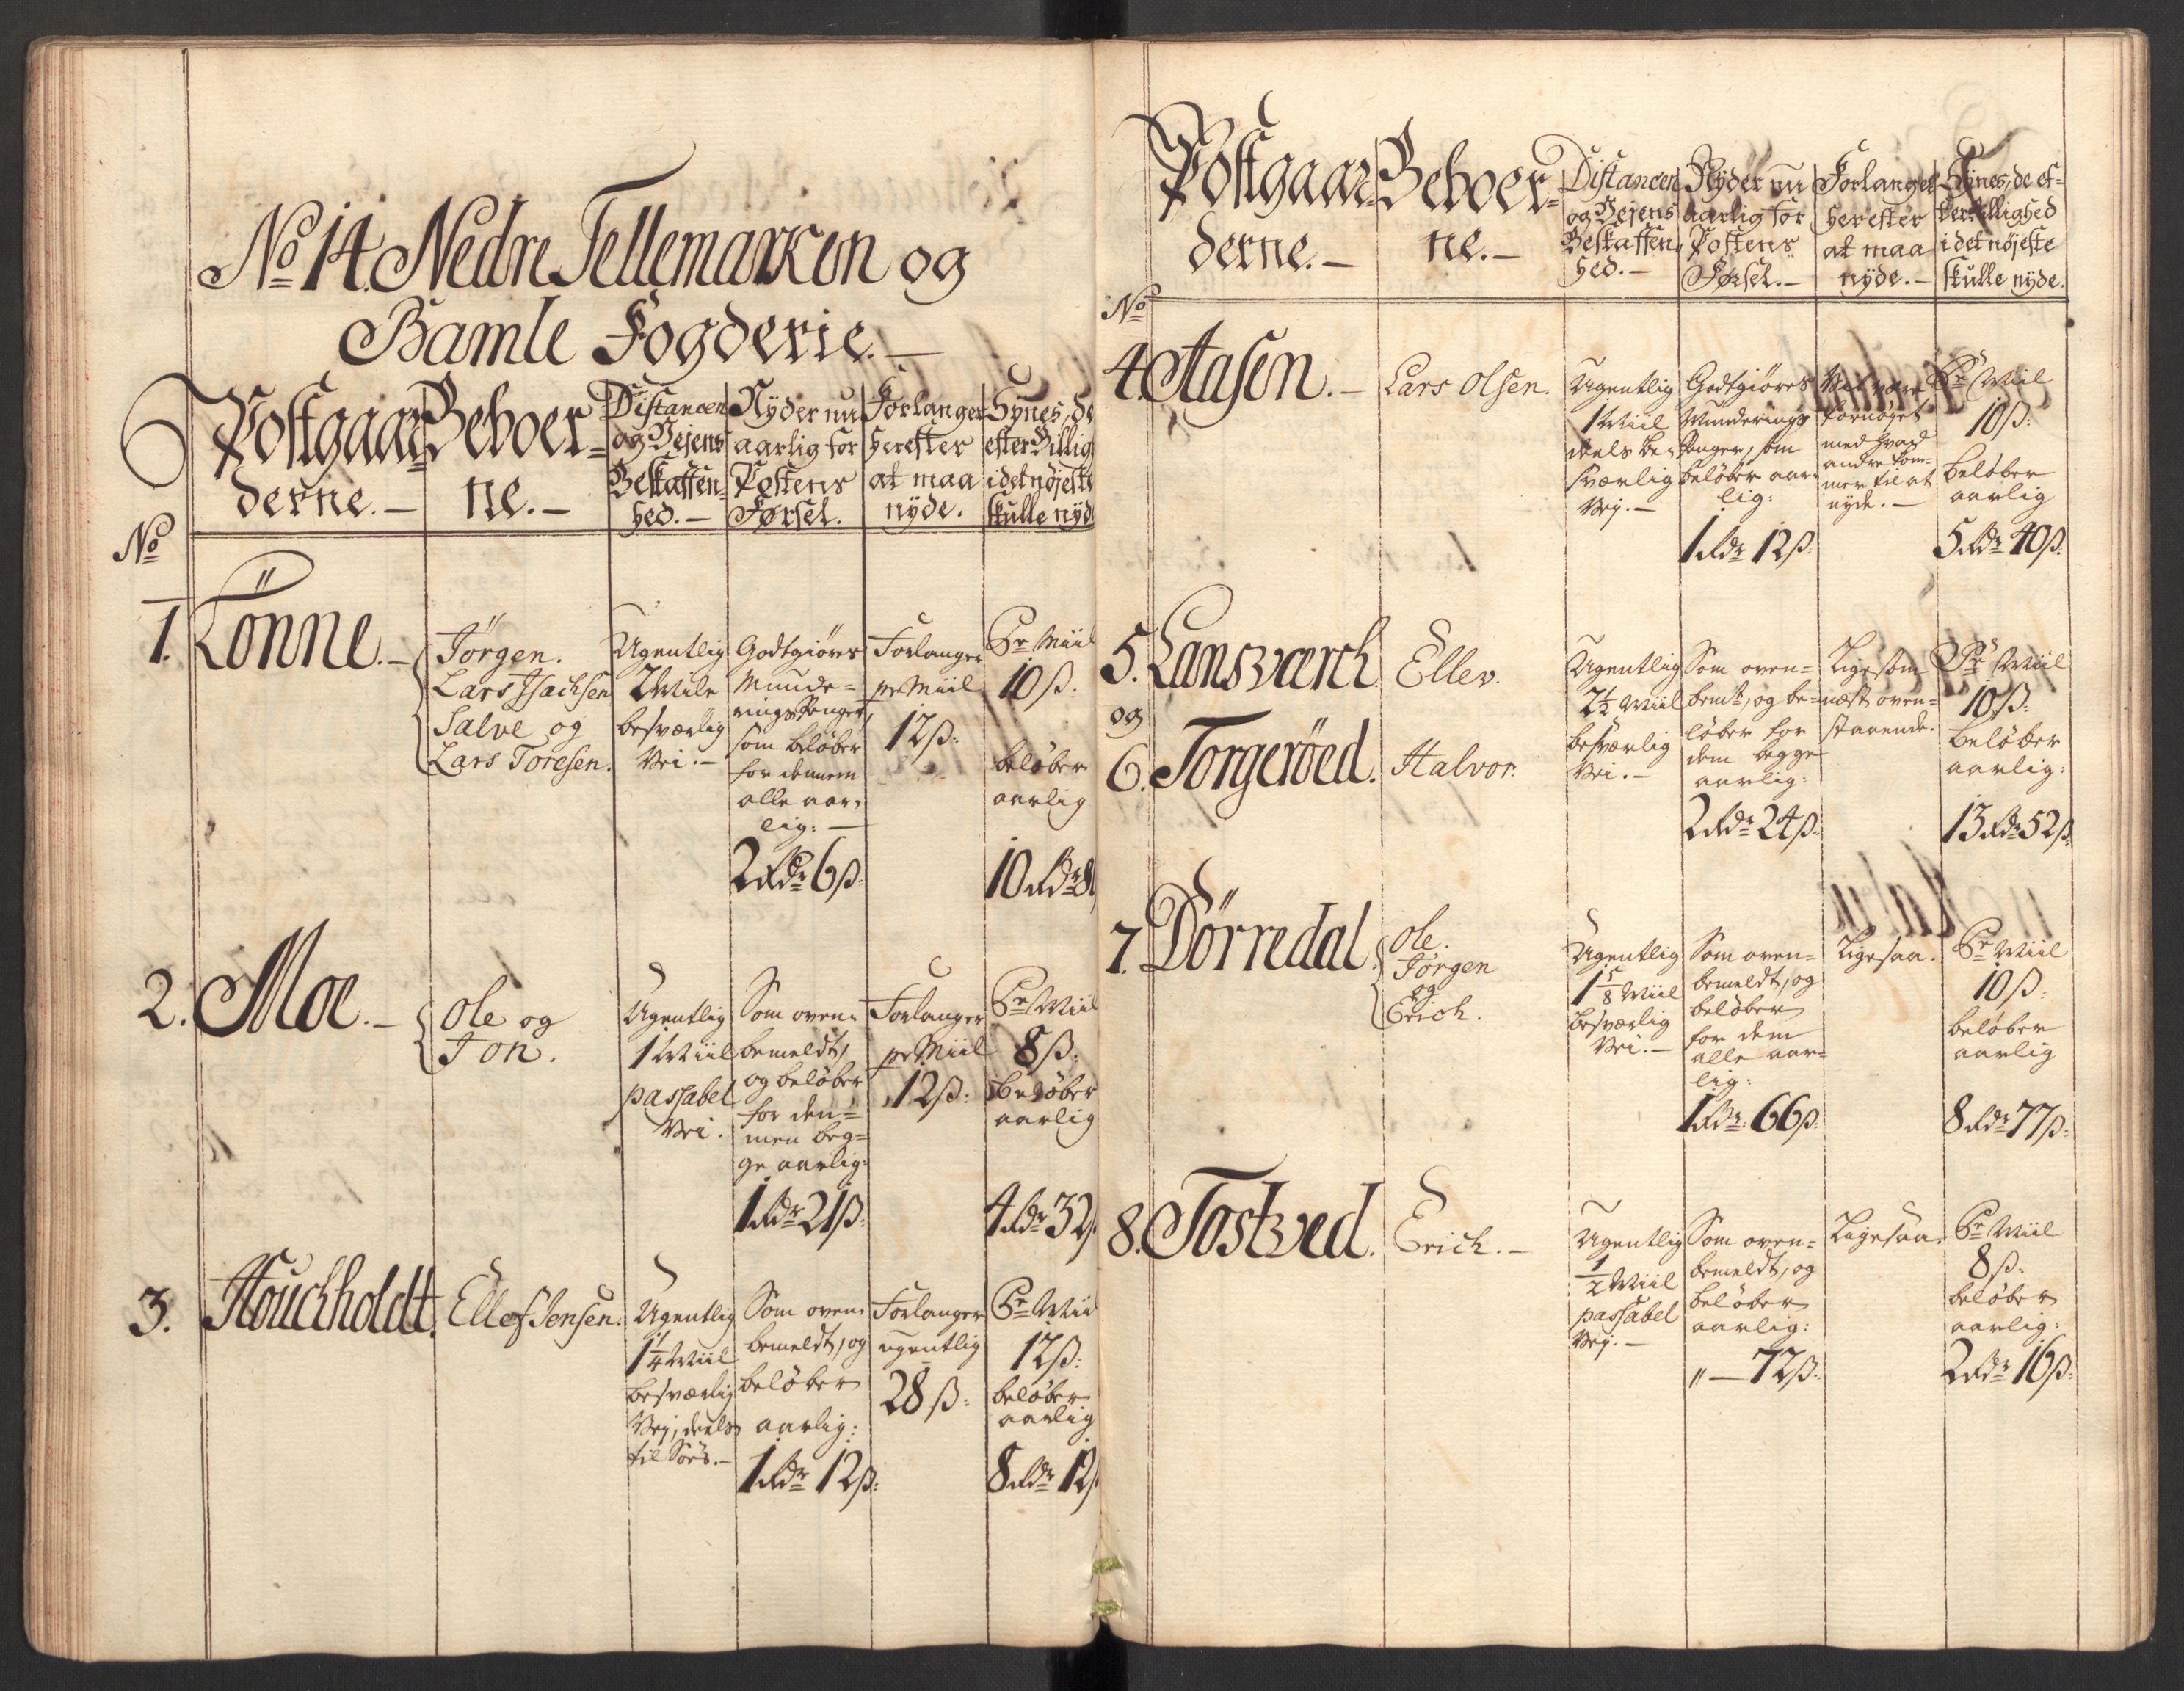 No 14. Nedre Tellemarken og
Bamle Fogderie.—
Postgaar=
derne.—
Beboer=
ne.—
Distancen
og Vejens
Beskaffen=
hed.—
Nyder nu
aarlig for
Postens
Førsel.
Forlanger
herefter
at maa
nyde.
Synes, de
efter Billig
i det nøjeste
skulle nyd
No
1. Tönne.—
Jörgen.
Lars Isachsen
Salve og
Lars Toresen.
Ugentlig
2 Mile
besværlig
Vei.—
Godtgiøres
Munde=
rings Penger,
som beløber
for dennem
alle aar=
lig:—
2 Rdr 6 ß.
Forlanger
pr Miil
12 ß:
Pr Miil
10 ß:
beløber
aarlig
10 Rdr 8
2. Moe.—
Ole og
Jon.
Ugentlig
1 Miil
passabel
Vei.
Som oven=
bemeldt,
og beløber
for den=
nem beg=
ge aarlig:
1 Rdr 21 ß:
Forlanger
pr Miil
12 ß:
Pr Miil
8 ß:
Beløber
aarlig
4 Rdr 32
3. Houchholdt.
Ellef Jensen.
Ugentlig
1 1/4 Miil
besværlig
Vej, deels
til Søes.—
Som oven=
bemeldt, og
beløber
aarlig:
1 Rdr 12 ß:
Forlanger
ugentlig
28 ß:
Pr Mii
12 ß:
beløber
aarlig
8 Rdr 12
Postgaar=
derne.—
Beboer=
ne.—
Distancen
og Vejens
Beskaffen=
hed.—
Nyder nu
aarlig for
Postens
Førsel.—
Forlanger
herefter
at maa
nyde.—
Synes, de ef=
ter Billighed
i det nøjeste
skulle nyde.
No
4. Aasen.—
Lars Olsen.
Ugentlig
1 Miil
deels be=
sværlig
Vej.—
Godtgiøres
Munderings
Penger, som
beløber aar=
lig:
1 Rdr 12 ß
Vil være
fornøjet
med hvad
andre kom=
mer til at
nyde.—
Pr Miil
10 ß:
beløber
aarlig
5 Rdr 40 ß.
5. Lansværch
og
6. Torgeröed.
Ellev.
Halvor.
Ugentlig
2 1/2 Miil
besværlig
Vei.—
Som oven=
bemt, og be=
løber for
dem begge
aarlig:
2 Rdr 24 ß.
Ligesom
næst oven=
staaende.
Pr Miil
10 ß.
beløber
aarlig:
13 Rdr 52 ß
7. Dörredal.
Ole.
Jörgen
og
Erich.
Ugentlig
1 5/8 Miil
besværlig
Vei.—
Som oven=
bemeldt, og
beløber
for dem
alle aar=
lig:
1 Rdr. 66 ß.
Ligesaa.
Pr Miil
10 ß.
beløber
aarlig
8 Rdr 77 ß:
8. Tostved.
Erich.—
Ugentlig
1/2 Miil
passabel
Vej.—
Som oven=
bemeldt, og
beløber
aarlig:
"— 72 ß:
Ligesaa.
Pr Miil
8 ß.
beløber
aarlig:
2 Rdr 16 ß: